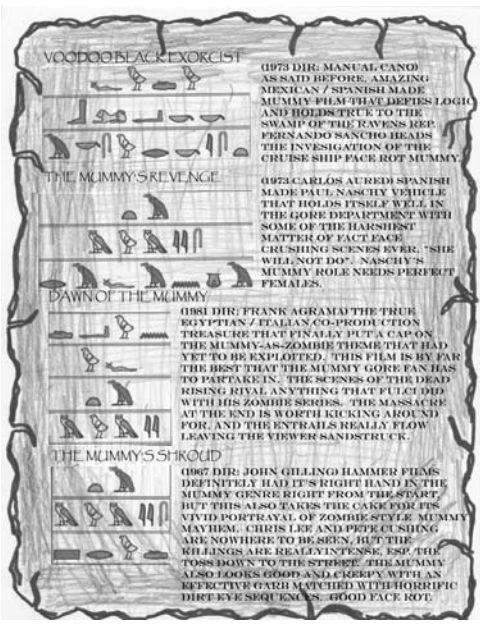 VOODOO BLACK EXORCIST
(1973 DIR: MANUAL CANO)
AS SAID BEFORE, AMAZING
MEXICAN / SPANISH MADE
MUMMY FILM THAT DEFIES LOGIC
AND HOLDS TRUE TO THE
SWAMP OF THE RAVENS REP.
FERNANDO SANCHO HEADS
THE INVESIGATION OF THE
CRUISE SHIP FACE ROT MUMMY.
THE MUMMY'S REVENGE
(1973 CARLOS AURED) SPANISH
MADE PAUL NASCHY VEHICLE
THAT HOLDS ITSELF WELL IN
THE GORE DEPARTMENT WITH
SOME OF THE HARSHEST
MATTER OF FACT FACE
CRUSHING SCENES EVER. "SHE
WILL NOT DO". NASCHY'S
MUMMY ROLE NEEDS PERFECT
FEMALES.
DAWN OF THE MUMMY
(1981 DIR; FRANK AGRAMA) THE TRUE
EGYPTIAN / ITALIAN CO-PRODUCTION
TREASURE THAT FINALLY PUT A CAP ON
THE MUMMY-AS-ZOMBIE THEME THAT HAD
YET TO BE EXPLOITED. THIS FILM IS BY FAR
THE BEST THAT THE MUMMY GORE FAN HAS
TO PARTAKE IN. THE SCENES OF THE DEAD
RISING RIVAL ANYTHING THAT FULCI DID
WITH HIS ZOMBIE SERIES. THE MASSACRE
AT THE END IS WORTH KICKING AROUND
FOR, AND THE ENTRAILS REALLY FLOW
LEAVING THE VIEWER SANDSTRUCK.
THE MUMMY'S SHROUD
(1967 DIR: JOHN GILLING) HAMMER FILMS
DEFINITELY HAD IT'S RIGHT HAND IN THE
MUMMY GENRE RIGHT FROM THE START,
BUT THIS ALSO TAKES THE CAKE FOR ITS
VIVID PORTRAYAL OF ZOMBIE STYLE MUMMY
MAYHEM. CHRIS LEE AND PETE CUSHING
ARE NOWHERE TO BE SEEN, BUT THE
KILLINGS ARE REALLY INTENSE, ESP. THE
TOSS DOWN TO THE STREET. THE MUMMY
ALSO LOOKS GOOD AND CREEPY WITH AN
EFFECTIVE GARB MATCHED WITH HORRIFIC
DIRT EYE SEQUENCES. GOOD FACE ROT.